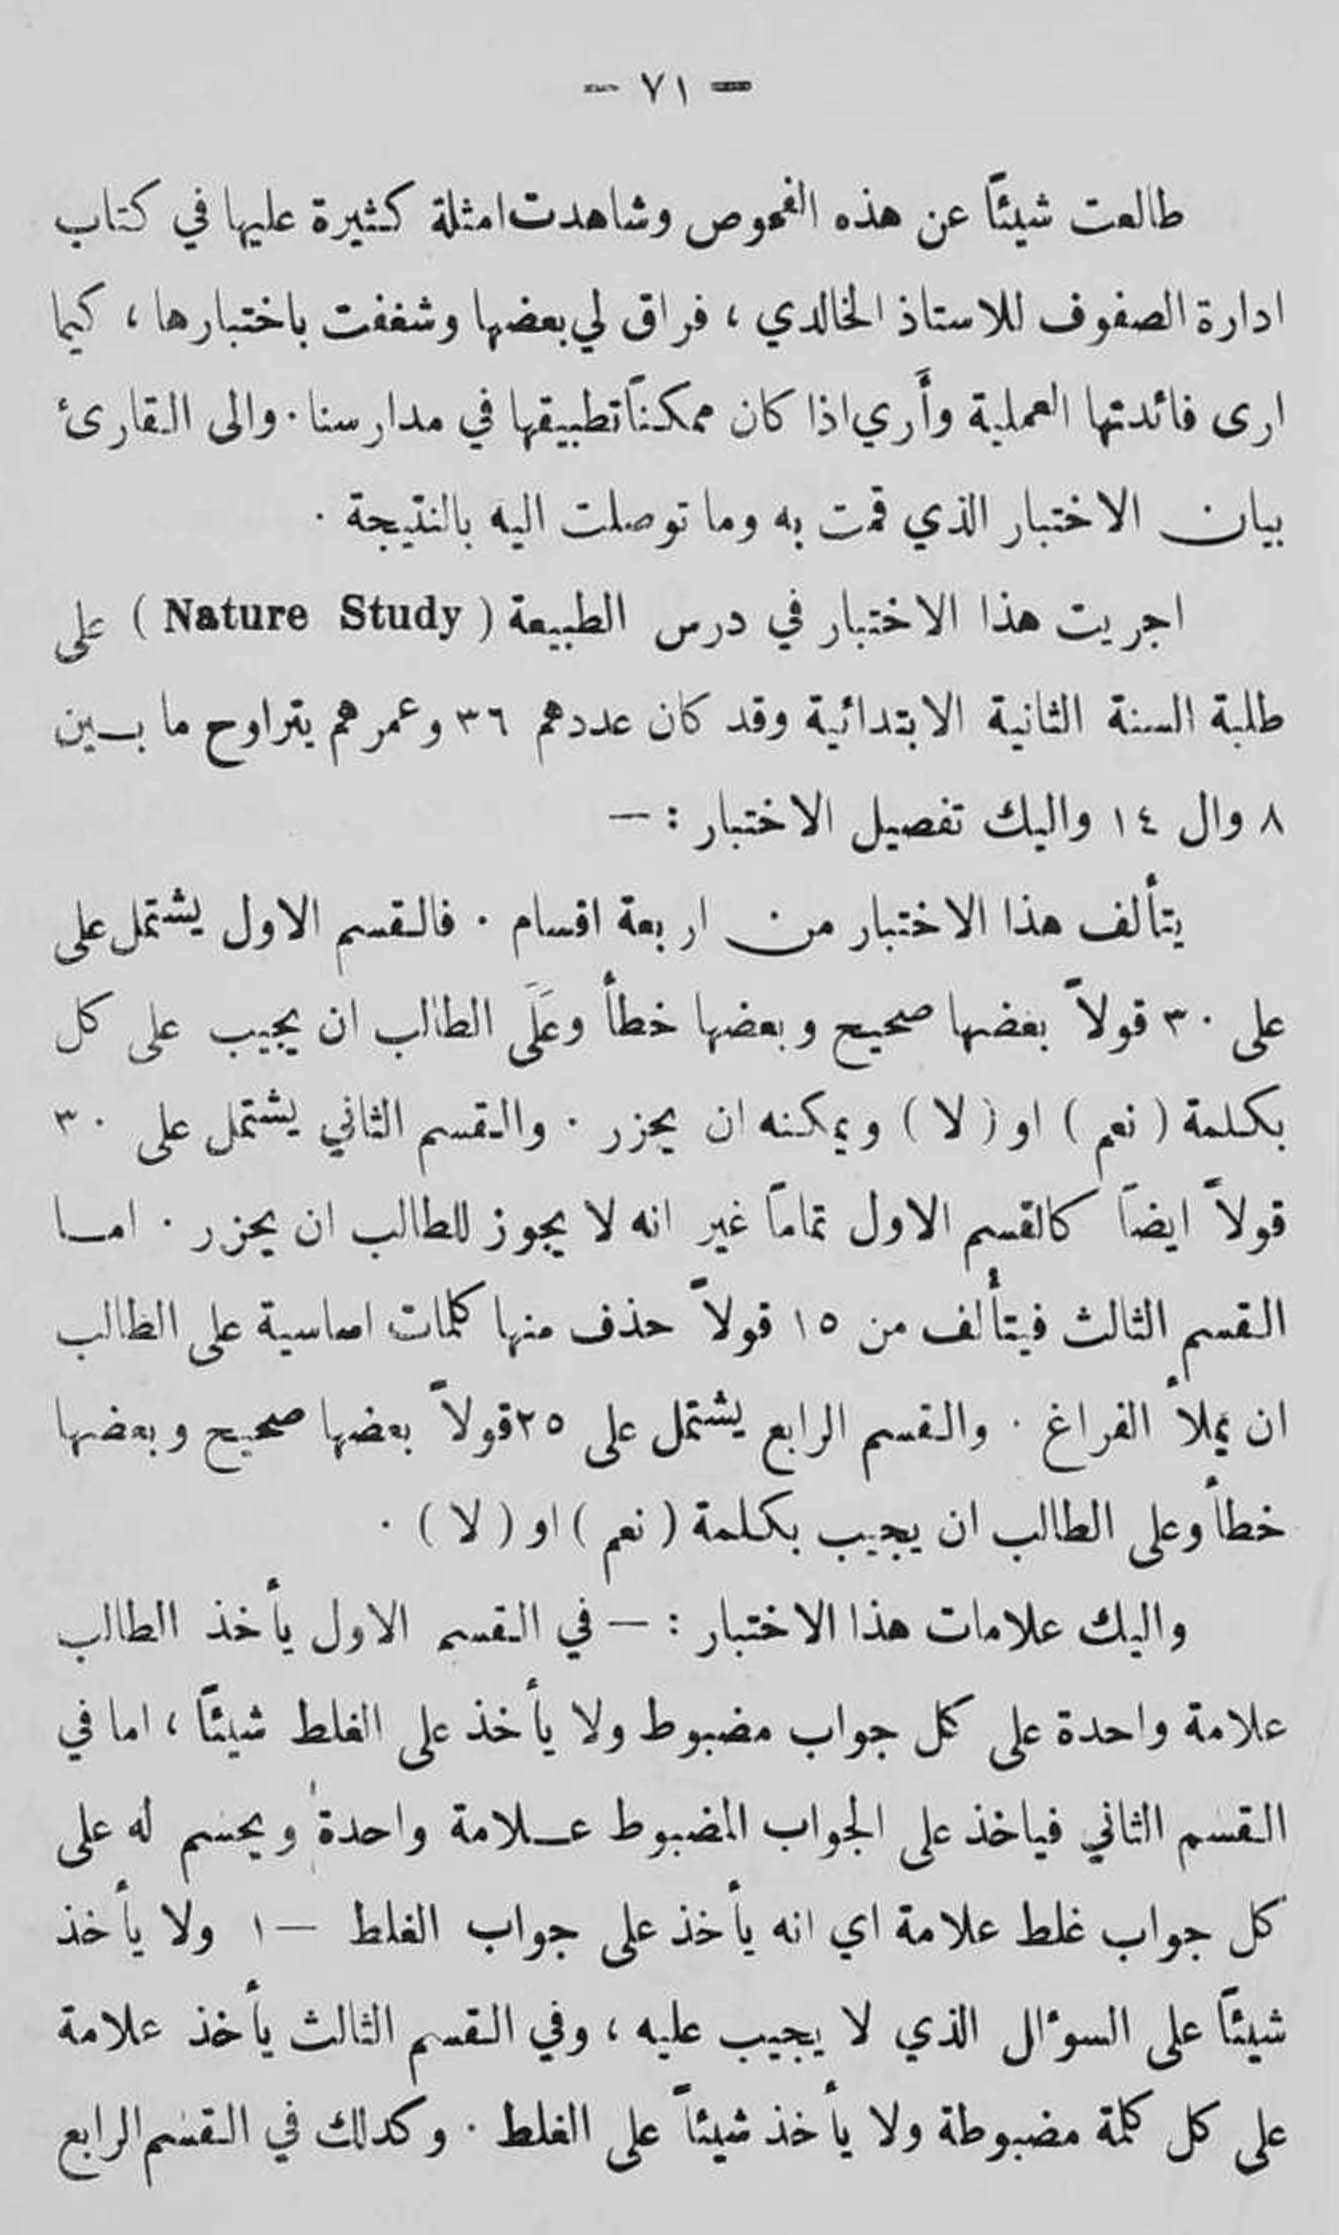 — ٧١ —
طالعت شيئاً عن هذه الفحوص وشاهدت امثلة كثيرة عليها في كتاب
ادارة الصفوف للاستاذ الخالدي ، فراق لي بعضها وشغفت باختبارها ، كيما
ارى فائدتها العملية وأَري اذا كان ممكناً تطبيقها في مدارسنا . والى القارئ
بيان الاختبار الذي قمت به وما توصلت اليه بالنتيجة .
اجريت هذا الاختبار في درس الطبيعة ( Nature Study ) على
طلبة السنة الثانية الابتدائية وقد كان عددهم ٣٦ وعمرهم يتراوح ما بــين
٨ وال ١٤ واليك تفصيل الاختبار : —
يتألف هذا الاختبار من اربعة اقسام . فالقسم الاول يشتمل على
على ٣٠ قولاً بعضها صحيح وبعضها خطأ وعَلَى الطالب ان يجيب على كل
بكلمة ( نعم ) او ( لا ) ويمكنه ان يحزر . والقسم الثاني يشتمل على ٣٠
قولاً ايضاً كالقسم الاول تماماً غير انه لا يجوز للطالب ان يحزر . امــا
القسم الثالث فيتأْلف من ١٥ قولاً حذف منها كلمات اساسية على الطالب
ان يملأ الفراغ . والقسم الرابع يشتمل على ٢٥ قولاً بعضها صحيح وبعضها
خطأ وعلى الطالب ان يجيب بكلمة ( نعم ) او ( لا ) .
واليك علامات هذا الاختبار : — في القسم الاول يأخذ الطالب
علامة واحدة على كل جواب مضبوط ولا يأخذ على الغلط شيئاً ، اما في
القسم الثاني فياخذ على الجواب المضبوط عــلامة واحدة ويحسم له على
كل جواب غلط علامة اي انه يأخذ على جواب الغلط — ١ ولا يأخذ
شيئاً على السوءال الذي لا يجيب عليه ، وفي القسم الثالث يأخذ علامة
على كل كلمة مضبوطة ولا يأخذ شيئاً على الغلط . وكذلك في القسم الرابع